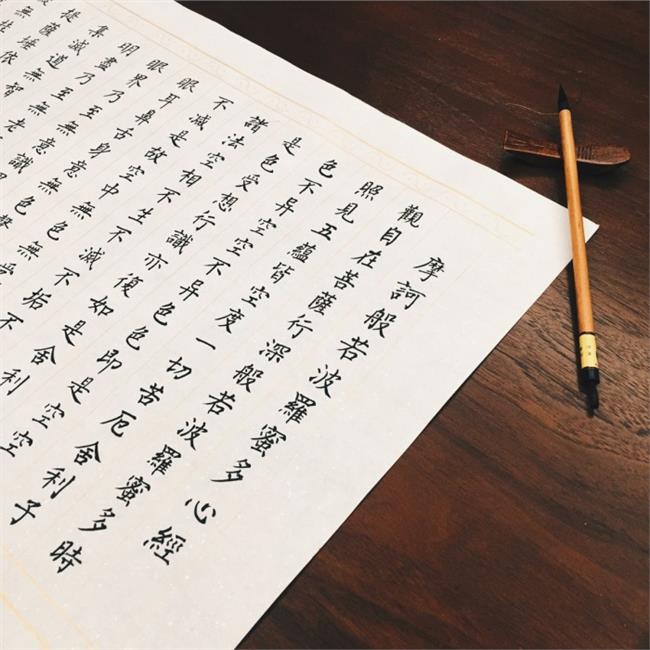 摩訶般若波羅蜜多心經
觀自在菩薩行深般若波羅蜜多時
照見五蘊皆空度一切苦厄舍利子
色不异空空不异色色即是空空
是色受想行識亦復如是舍利
諸法空相不生不滅不垢不
不減是故空中無色無
眼耳鼻舌身意無色聲
眼界乃至無意識界
明盡乃至無老
集滅道無智
提薩埵依